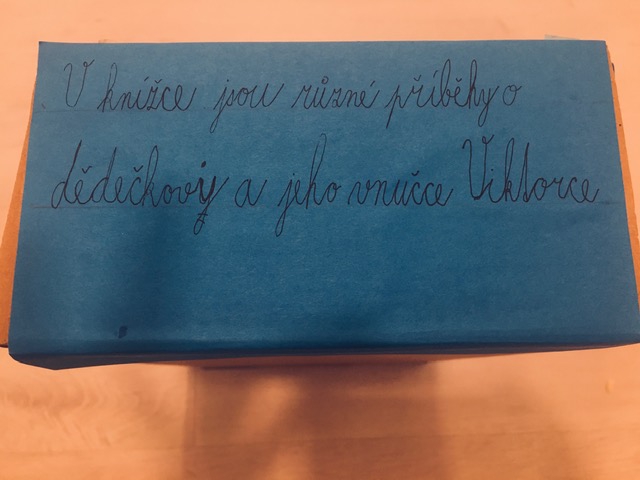 V knížce jsou různé příběhy o
dědečkovi a jeho vnučce Viktorce